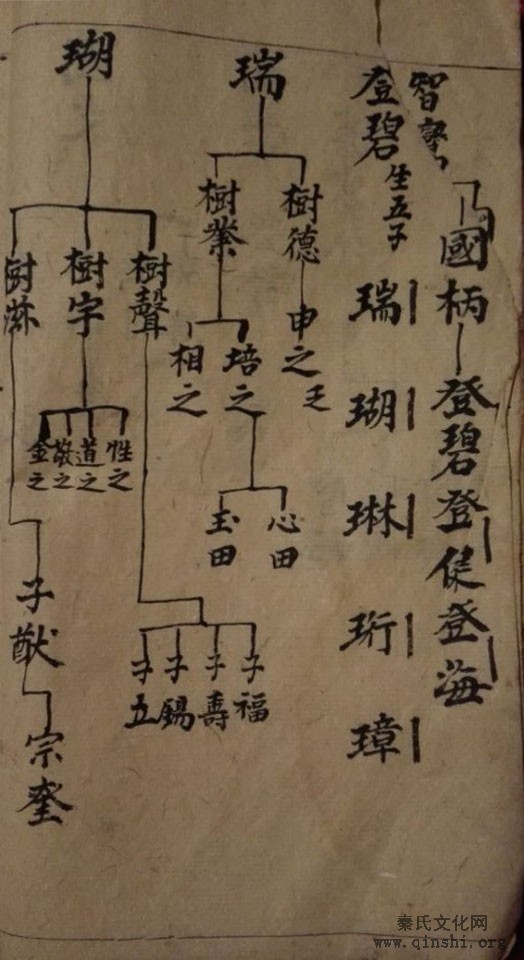 智
國柄
登碧 登健 登海
登碧生五子
瑞
瑚
琳
珩
璋
瑞
樹德
申之
乏
樹業
培之
相之
心田
玉田
瑚
樹聲
子福
子壽
子錫
子五
樹字
性之
道之
敬之
金之
樹滋
子猷
宗奎
秦氏文化网
www.qinshi.org